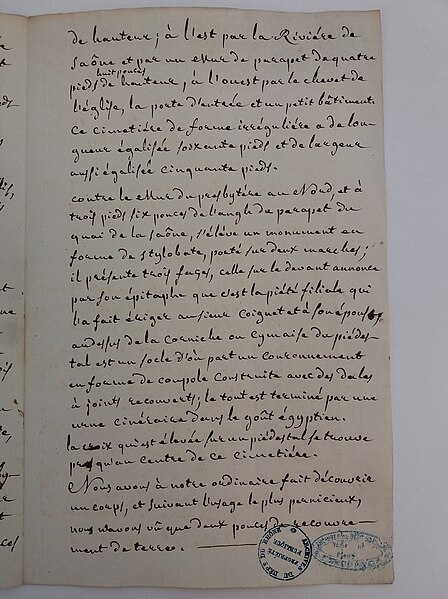 de hauteur; à l'est par la Rivière de
Saône et par un Mur de parapet de quatre
huit pouces
pieds de hauteur, à l'ouest par le chevet de
l'église, la porte d'entrée et un petit bâtiment.
Ce cimetière de forme irrégulière a de lon-
gueur égalisée soixante pieds et de largeur
aussi égalisée cinquante pieds.
contre le Mur du presbytère au Nord, et à
trois pieds six pouces de l'angle du parapet du
quai de la saône, s'élève un monument en
forme de stylobate, posté sur deux marches;
il présente trois faces, celle sur le devant annonce
par son épitaphe que c'est la piété filiale qui
l'a fait ériger au sieur Coignet et à son épouse,
au dessus de la corniche ou cymaise du piédes-
tal est un socle d'où part un couronnement
en forme de coupole construite avec des dales
à joints recouverts; le tout est terminé par une
urne cinéraire dans le goût égyptien.
la croix qui est élevée sur un piédestal se trouve
presqu'au centre de ce cimetière.
Nous avons à notre ordinaire fait découvrir
un corps, et suivant l'usage le plus pernicieux,
nous n'avons vû que deux pouces de recouvre-
ment de terre.
ARCHIVES DU DÉPT DU RHÔNE
PROPRIÉTÉ PUBLIQUE